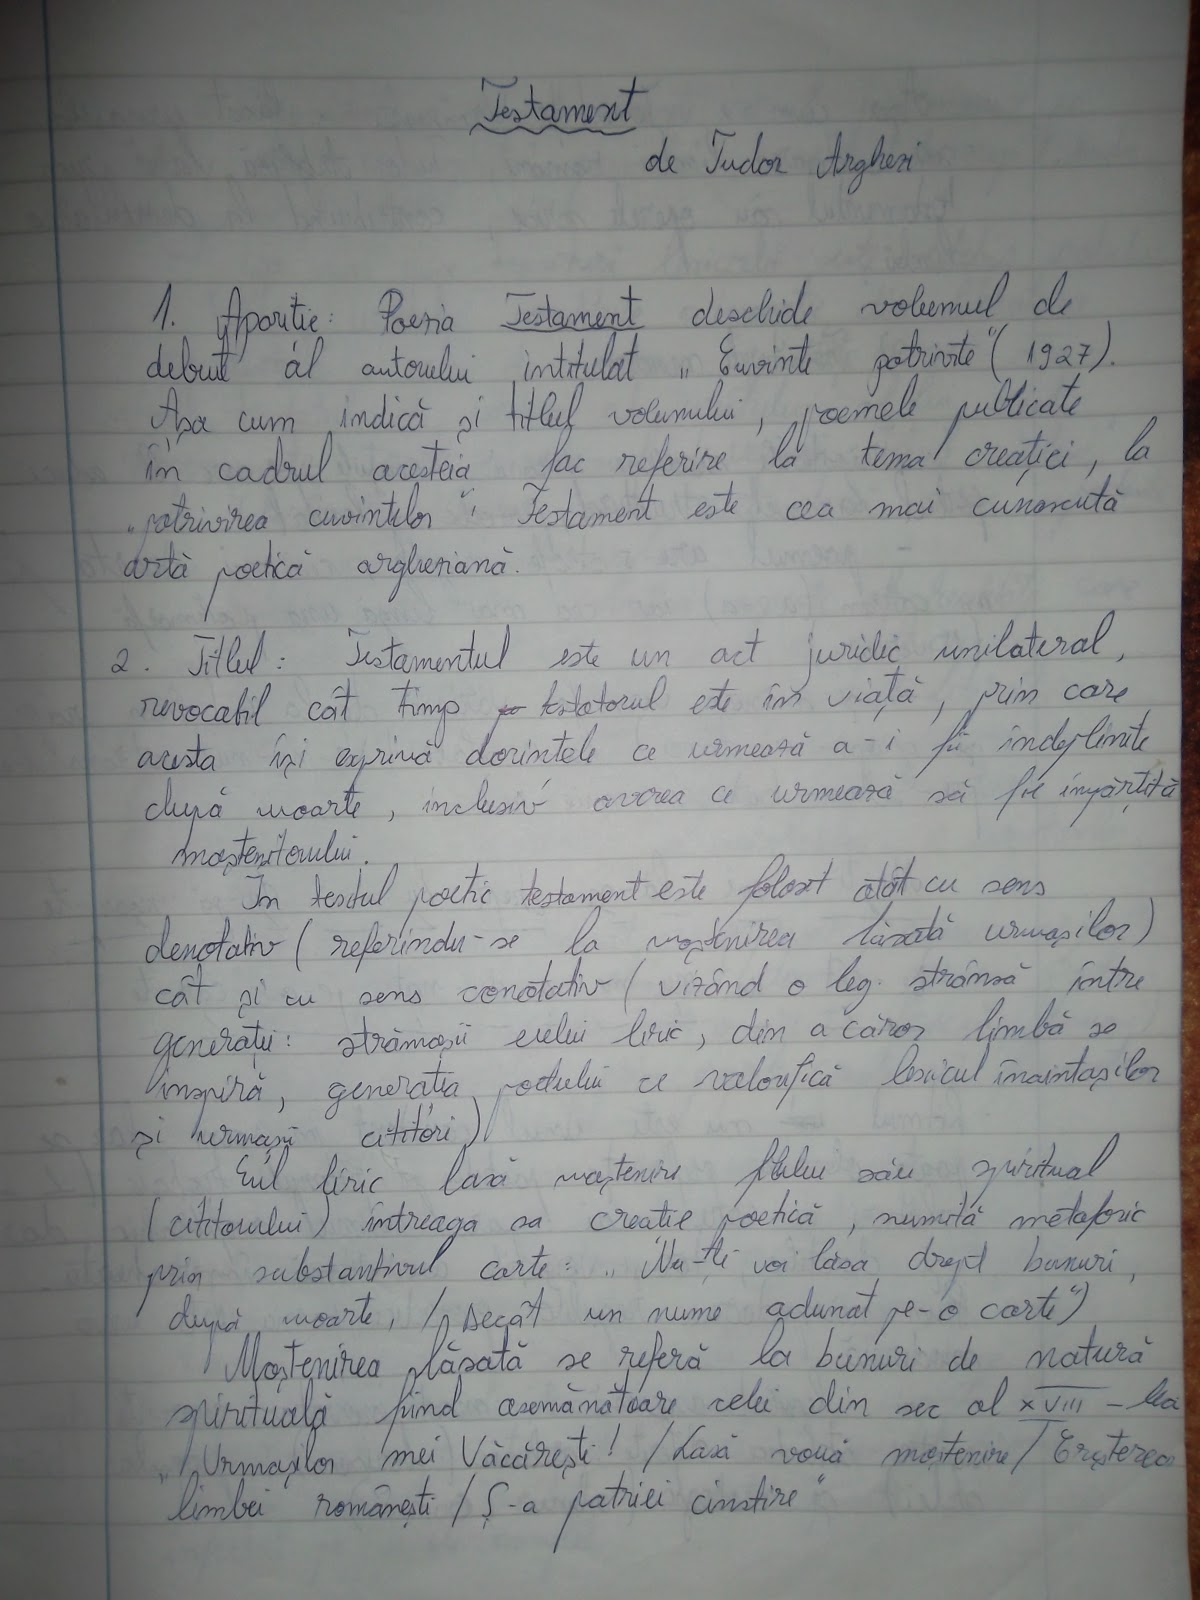 Testament
de Tudor Arghezi
1. Apariție: Poezia Testament deschide volumul de
debut al autorului intitulat „Cuvinte potrivite" (1927).
Așa cum indică și titlul volumului, poemele publicate
în cadrul acesteia fac referire la tema creației, la
„potrivirea cuvintelor"; Testament este cea mai cunoscută
artă poetică argheziană.
2. Titlul: Testamentul este un act juridic unilateral,
revocabil cât timp testatorul este în viață, prin care
acesta își exprimă dorințele ce urmează a-i fi îndeplinite
după moarte, inclusiv averea ce urmează să fie împărțită
moștenitorului.
În textul poetic testament este folosit atât cu sens
denotativ (referindu-se la moștenirea lăsată urmașilor)
cât și cu sens conotativ (vizând o leg. strânsă între
generații: strămoșii eului liric, din a căror limbă se
inspiră, generația poetului ce valorifică lexicul înaintașilor
și urmașii cititori)
Eul liric lasă moștenire fiului său spiritual
(cititorului) întreaga sa creație poetică, numită metaforic
prin substantivul carte: „Nu-ți voi lăsa drept bunuri,
după moarte, / Decât un nume adunat pe-o carte")
Moștenirea lăsată se referă la bunuri de natură
spirituală fiind asemănătoare celei din sec al XVIII-lea
„Urmașilor mei Văcărești! / Lasă vouă moștenire / Creșterea
limbei românești / Ș-a patriei cinstire"